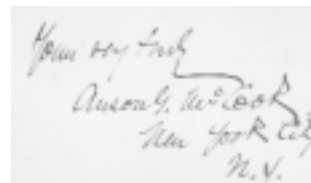 Yours very truly
Anson G. McCook
New York City
N.Y.